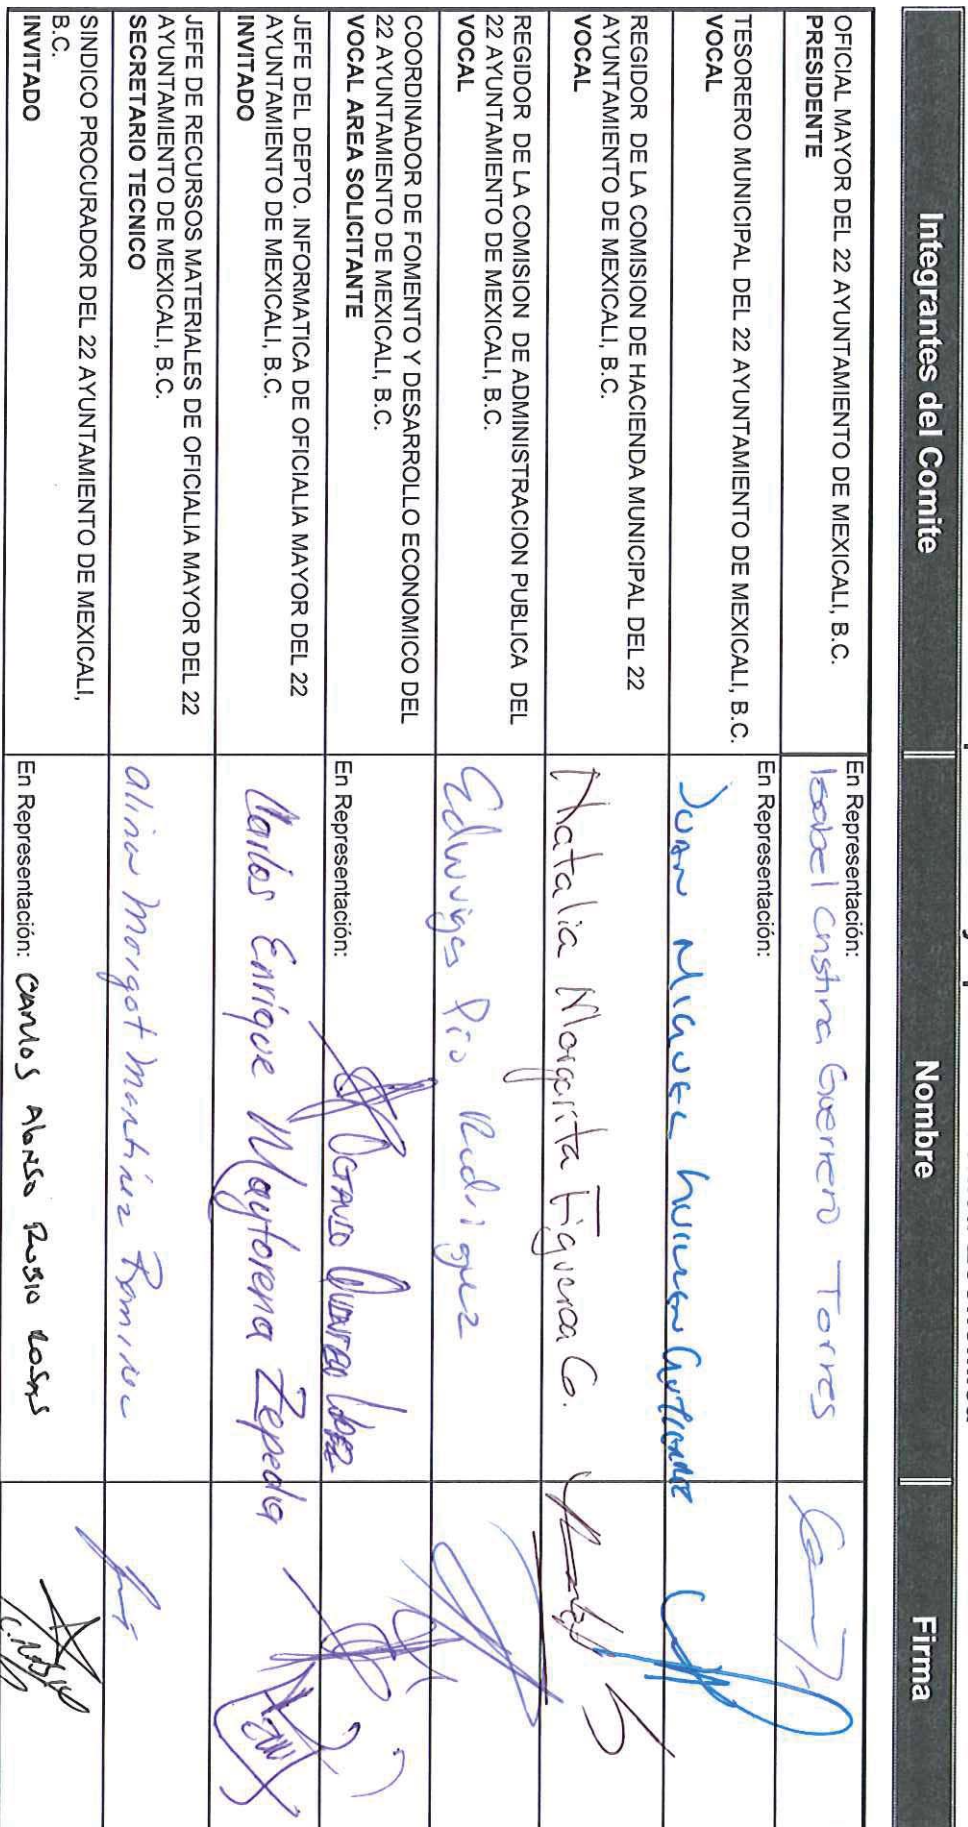 Integrantes del Comite
Nombre
Firma
OFICIAL MAYOR DEL 22 AYUNTAMIENTO DE MEXICALI, B.C.
PRESIDENTE
En Representación:
Isabel Cristina Guerrero Torres
TESORERO MUNICIPAL DEL 22 AYUNTAMIENTO DE MEXICALI, B.C.
VOCAL
En Representación:
Juan Miguel Gutierrez
REGIDOR DE LA COMISION DE HACIENDA MUNICIPAL DEL 22
AYUNTAMIENTO DE MEXICALI, B.C.
VOCAL
Natalia Margarita Figueroa Co.
REGIDOR DE LA COMISION DE ADMINISTRACION PUBLICA DEL
22 AYUNTAMIENTO DE MEXICALI, B.C.
VOCAL
Edwviges Pio Rodriguez
COORDINADOR DE FOMENTO Y DESARROLLO ECONOMICO DEL
22 AYUNTAMIENTO DE MEXICALI, B.C.
VOCAL AREA SOLICITANTE
En Representación:
Octavio Quintero López
JEFE DEL DEPTO. INFORMATICA DE OFICIALIA MAYOR DEL 22
AYUNTAMIENTO DE MEXICALI, B.C.
INVITADO
Carlos Enrique Maytorena Zepeda
JEFE DE RECURSOS MATERIALES DE OFICIALIA MAYOR DEL 22
AYUNTAMIENTO DE MEXICALI, B.C.
SECRETARIO TECNICO
Alina Margot Martinez Ramirez
SINDICO PROCURADOR DEL 22 AYUNTAMIENTO DE MEXICALI,
B.C.
INVITADO
En Representación: Carlos Alonso Rubio Rosas